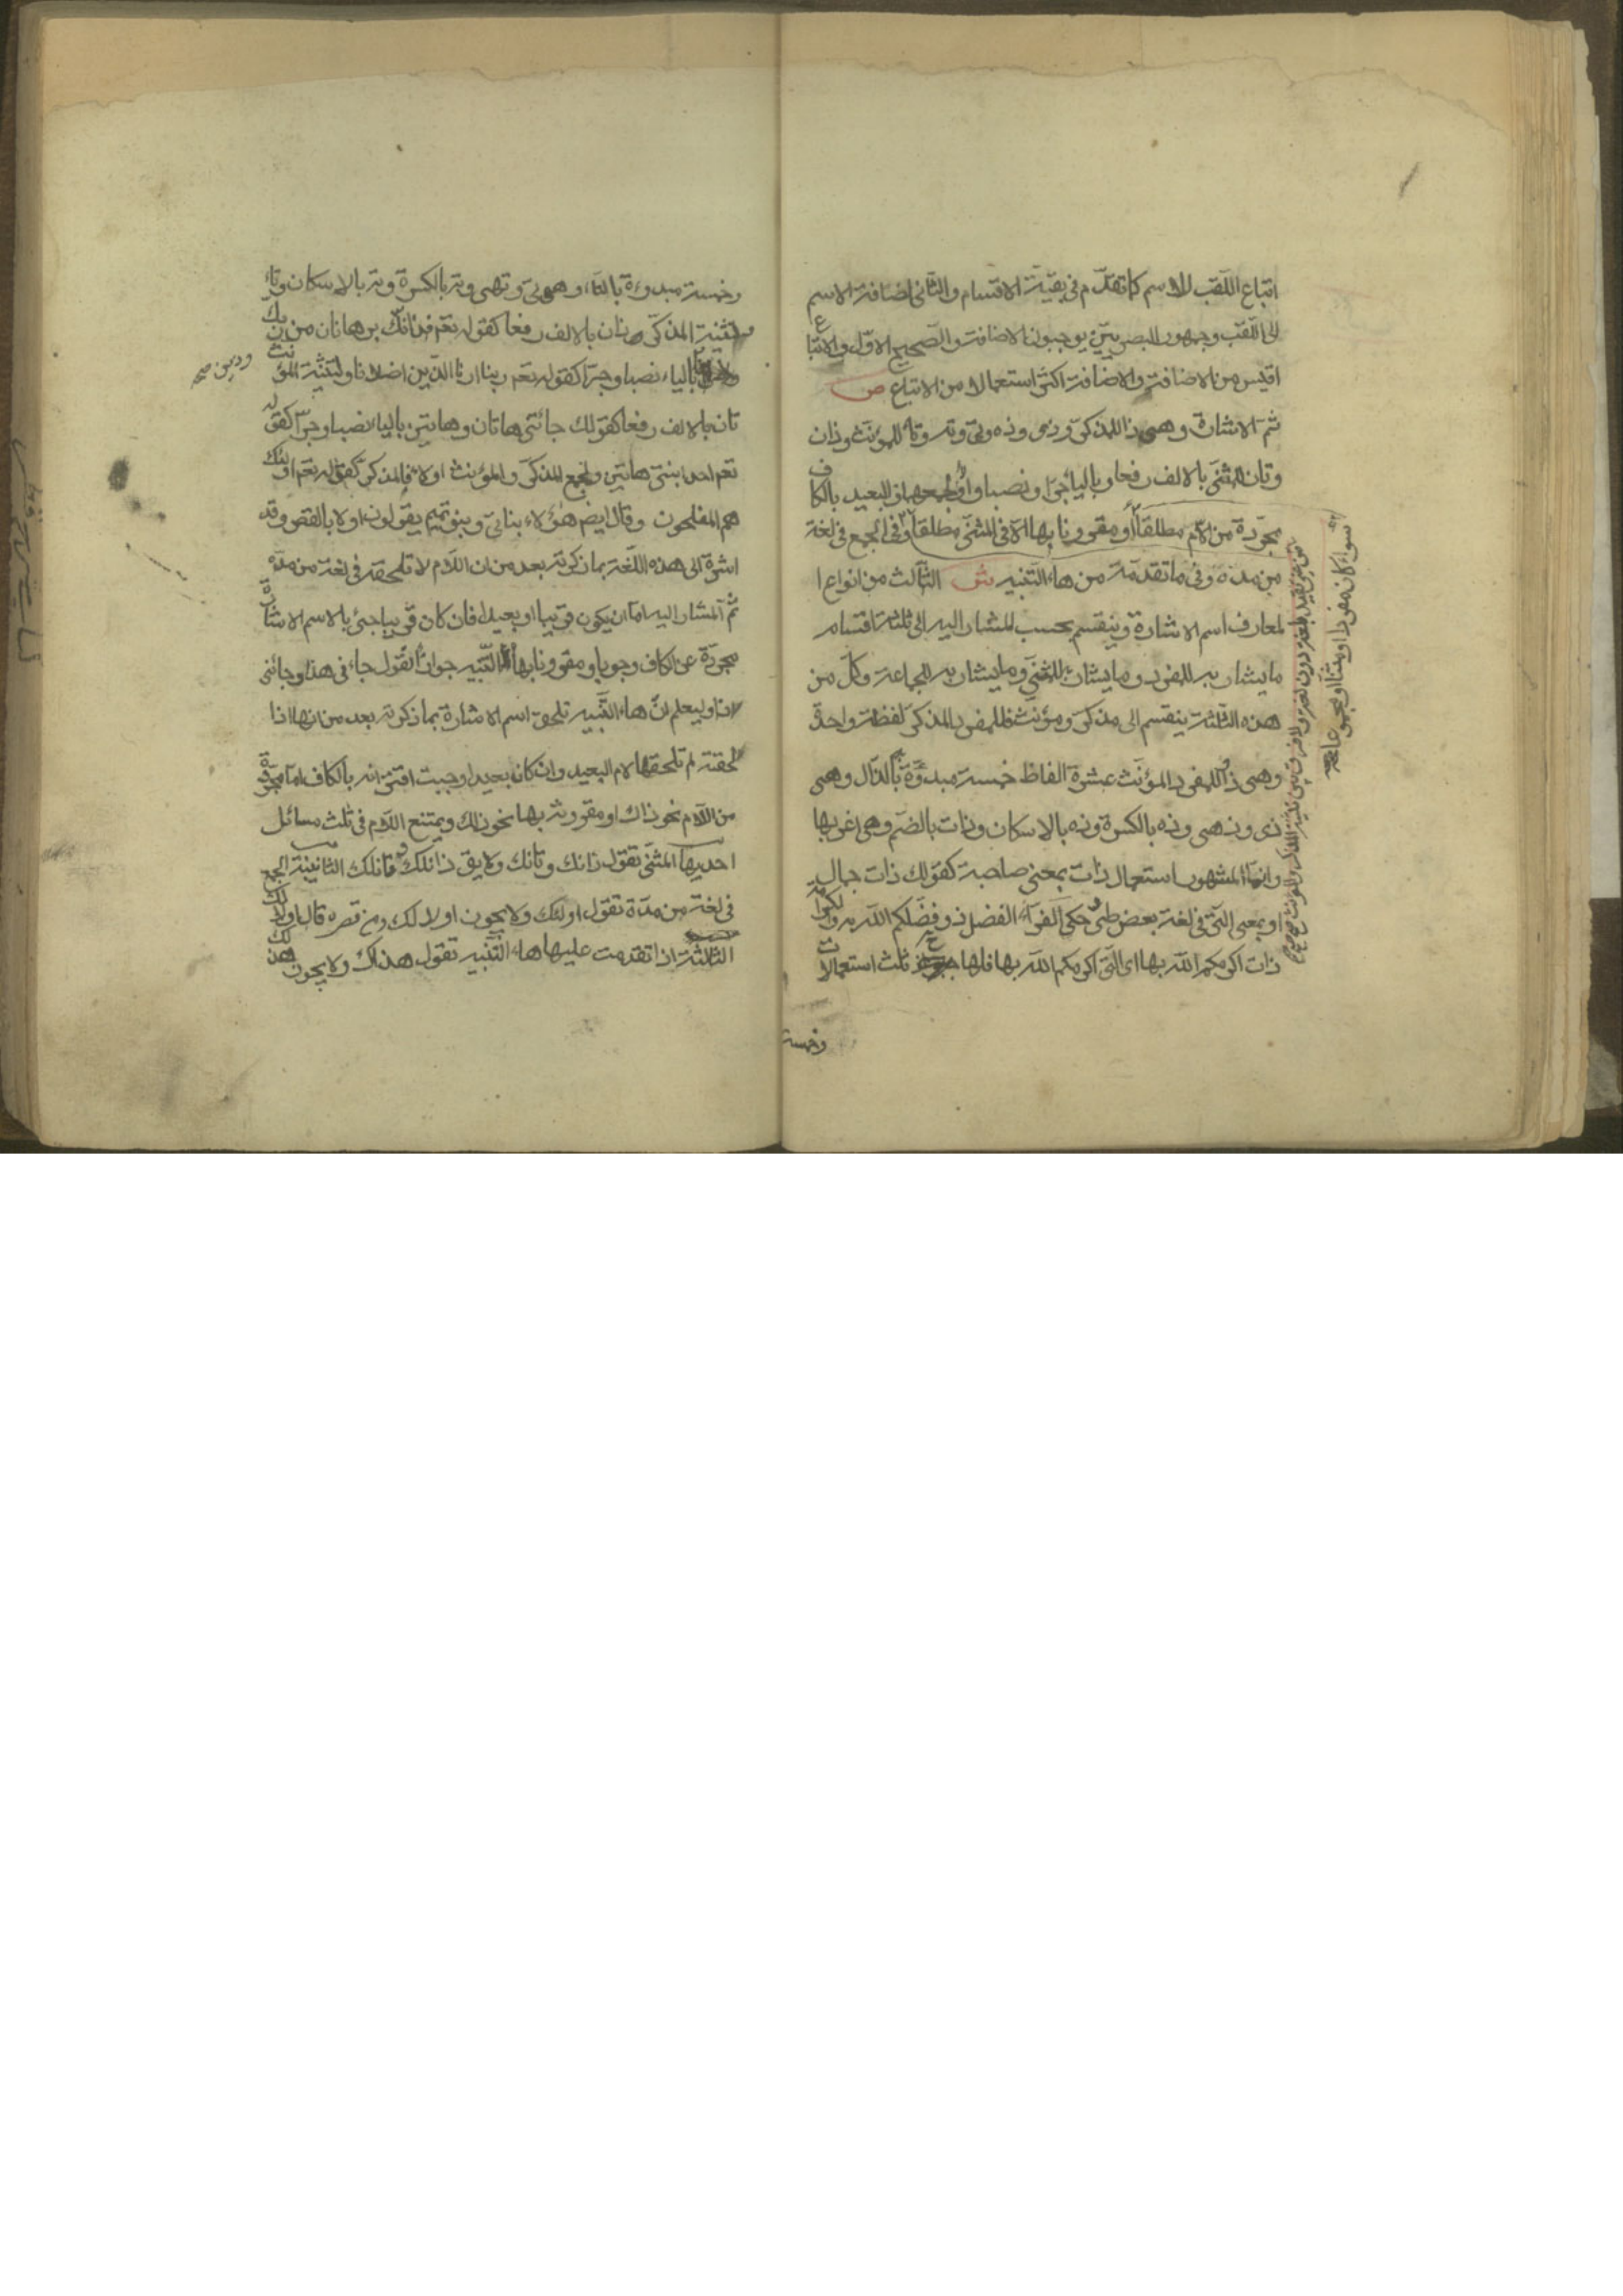 اتباع اللّقب للاسم كما تقدّم في بقيّة الاقسام والثّاني اضافة الاسم
الى اللّقب وجمهور البصريّين يوجبون الاضافة والصّحيح الاوّل والاتباع
اقيس من الاضافة والاضافة اكثر استعمالا من الاتباع ص
ثم الاشارة وهي ذا للمذكّر وذي وذه وتي وته وتا للمؤنّث وذان
وتان للمثنّى بالالف رفعا وبالياء جرّا ونصبا واولاء لجمعهما والبعيد بالكاف
مجرّدة من اللّام مطلقا او مقرونا بها الّا في المثنّى مطلقا وفي الجمع في لغة
من مدّه وفي ما تقدّمته من هاء التّنبيه ش الثّالث من انواع ا
لمعارف اسم الاشارة وينقسم بحسب المشار اليه الى ثلثة اقسام
ما يشار به للمفرد وما يشار به للمثنّى وما يشار به للجماعة وكلّ من
هذه الثّلثة ينقسم الى مذكّر ومؤنّث فللمفرد المذكّر لفظة واحدة
وهي ذا وللمفرد المؤنّث عشرة الفاظ خمسة مبدوّة بالذّال وهي
ذي وذهي وذه بالكسرة وذه بالاسكان وذات بالضّم وهي اغربها
وانّما المشهور استعمال ذات بمعنى صاحبة كقولك ذات جمال
او بمعنى الّتي في لغة بعض طيّ حكى الفرّاء الفضل ذو فضّلكم اللّه به والكرامة
ذات اكرمكم اللّه بها اى الّتي اكرمكم اللّه بها فلها ح ثلث استعمالات
وخمسة
سواء كان مفردا او مثنّا او مجموعا صح
وخمسة مبدوءة بالتّاء وهي تي وتهي وته بالكسرة وته بالاسكان وتا
ولتثنية المذكّر ذان بالالف رفعا كقوله تعم فذانك برهانان من ربك
بالياء نصبا وجرّا كقوله تعم ربنا ارنا الّذين اضلّانا ولتثنية المؤنث
تان بالالف رفعا كقولك جائتني هاتان وهاتين بالياء نصبا وجرّا كقوله
تعم احدى ابنتيّ هاتين ولجمع المذكّر والمؤنث اولاء فالمذكر كقوله تعم اولئك
هم المفلحون وقال ايضا هؤلاء بناتي وبنو تميم يقولون اولا بالقصر وقد
اشرة الى هذه اللّغة بما ذكرته بعد من ان اللّام لا تلحقه في لغة من مدّه
ثمّ المشار اليه امّا ان يكون قريبا او بعيدا فان كان قريبا جئ بالاسم الاشارة
مجرّدة عن الكاف وجوبا ومقرونا بهاء التّنبيه جوازا تقول جاءني هذا وجائني
ذا وليعلم انّ هاء التّنبيه تلحق اسم الاشارة بما ذكرته بعد من انها اذا
لحقته لم تلحقها لام البعيد وان كان بعيدا وجبت اقترانه بالكاف امّا مجرّدة
من اللّام نحو ذاك او مقرونة بها نحو ذلك ويمتنع اللّام في ثلث مسائل
احديها المثنّى تقول ذانك وتانك ولا يق ذانلك وتانلك الثانية الجمع
في لغة من مدّة تقول اولئك ولا يجوز اولالك ومن قصره قال اولالك
الثّالثة اذا تقدمت عليها هاء التّنبيه تقول هذاك ولا يجوز هذلك